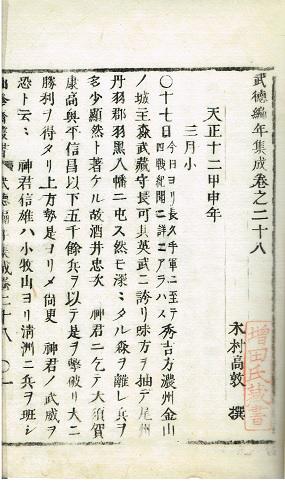 武德編年集成卷之二十八
木村高敦 撰
増田氏藏書
天正十二甲申年
三月小
〇十七日 今日ヨリ長久手軍ニ至テ四戰紀聞ニ詳ニアラハス 秀吉方濃州金山
ノ城主森武藏守長可其英武ニ誇リ味方ヲ抽テ尾州
丹羽郡羽黒八幡ニ屯ス然モ深ミタル森ヲ離レ兵ヲ
多少顯然ト著ケル故酒井忠次 神君ニ乞テ大須賀
康高奥平信昌以下五千餘兵ヲ以テ是ヲ撃破リ大ニ
勝利ヲ得タリ上方勢是ヨリメ尚更 神君ノ武威ヲ
恐ト云々 神君信雄ハ小牧山ヨリ清洲ニ兵ヲ班シ